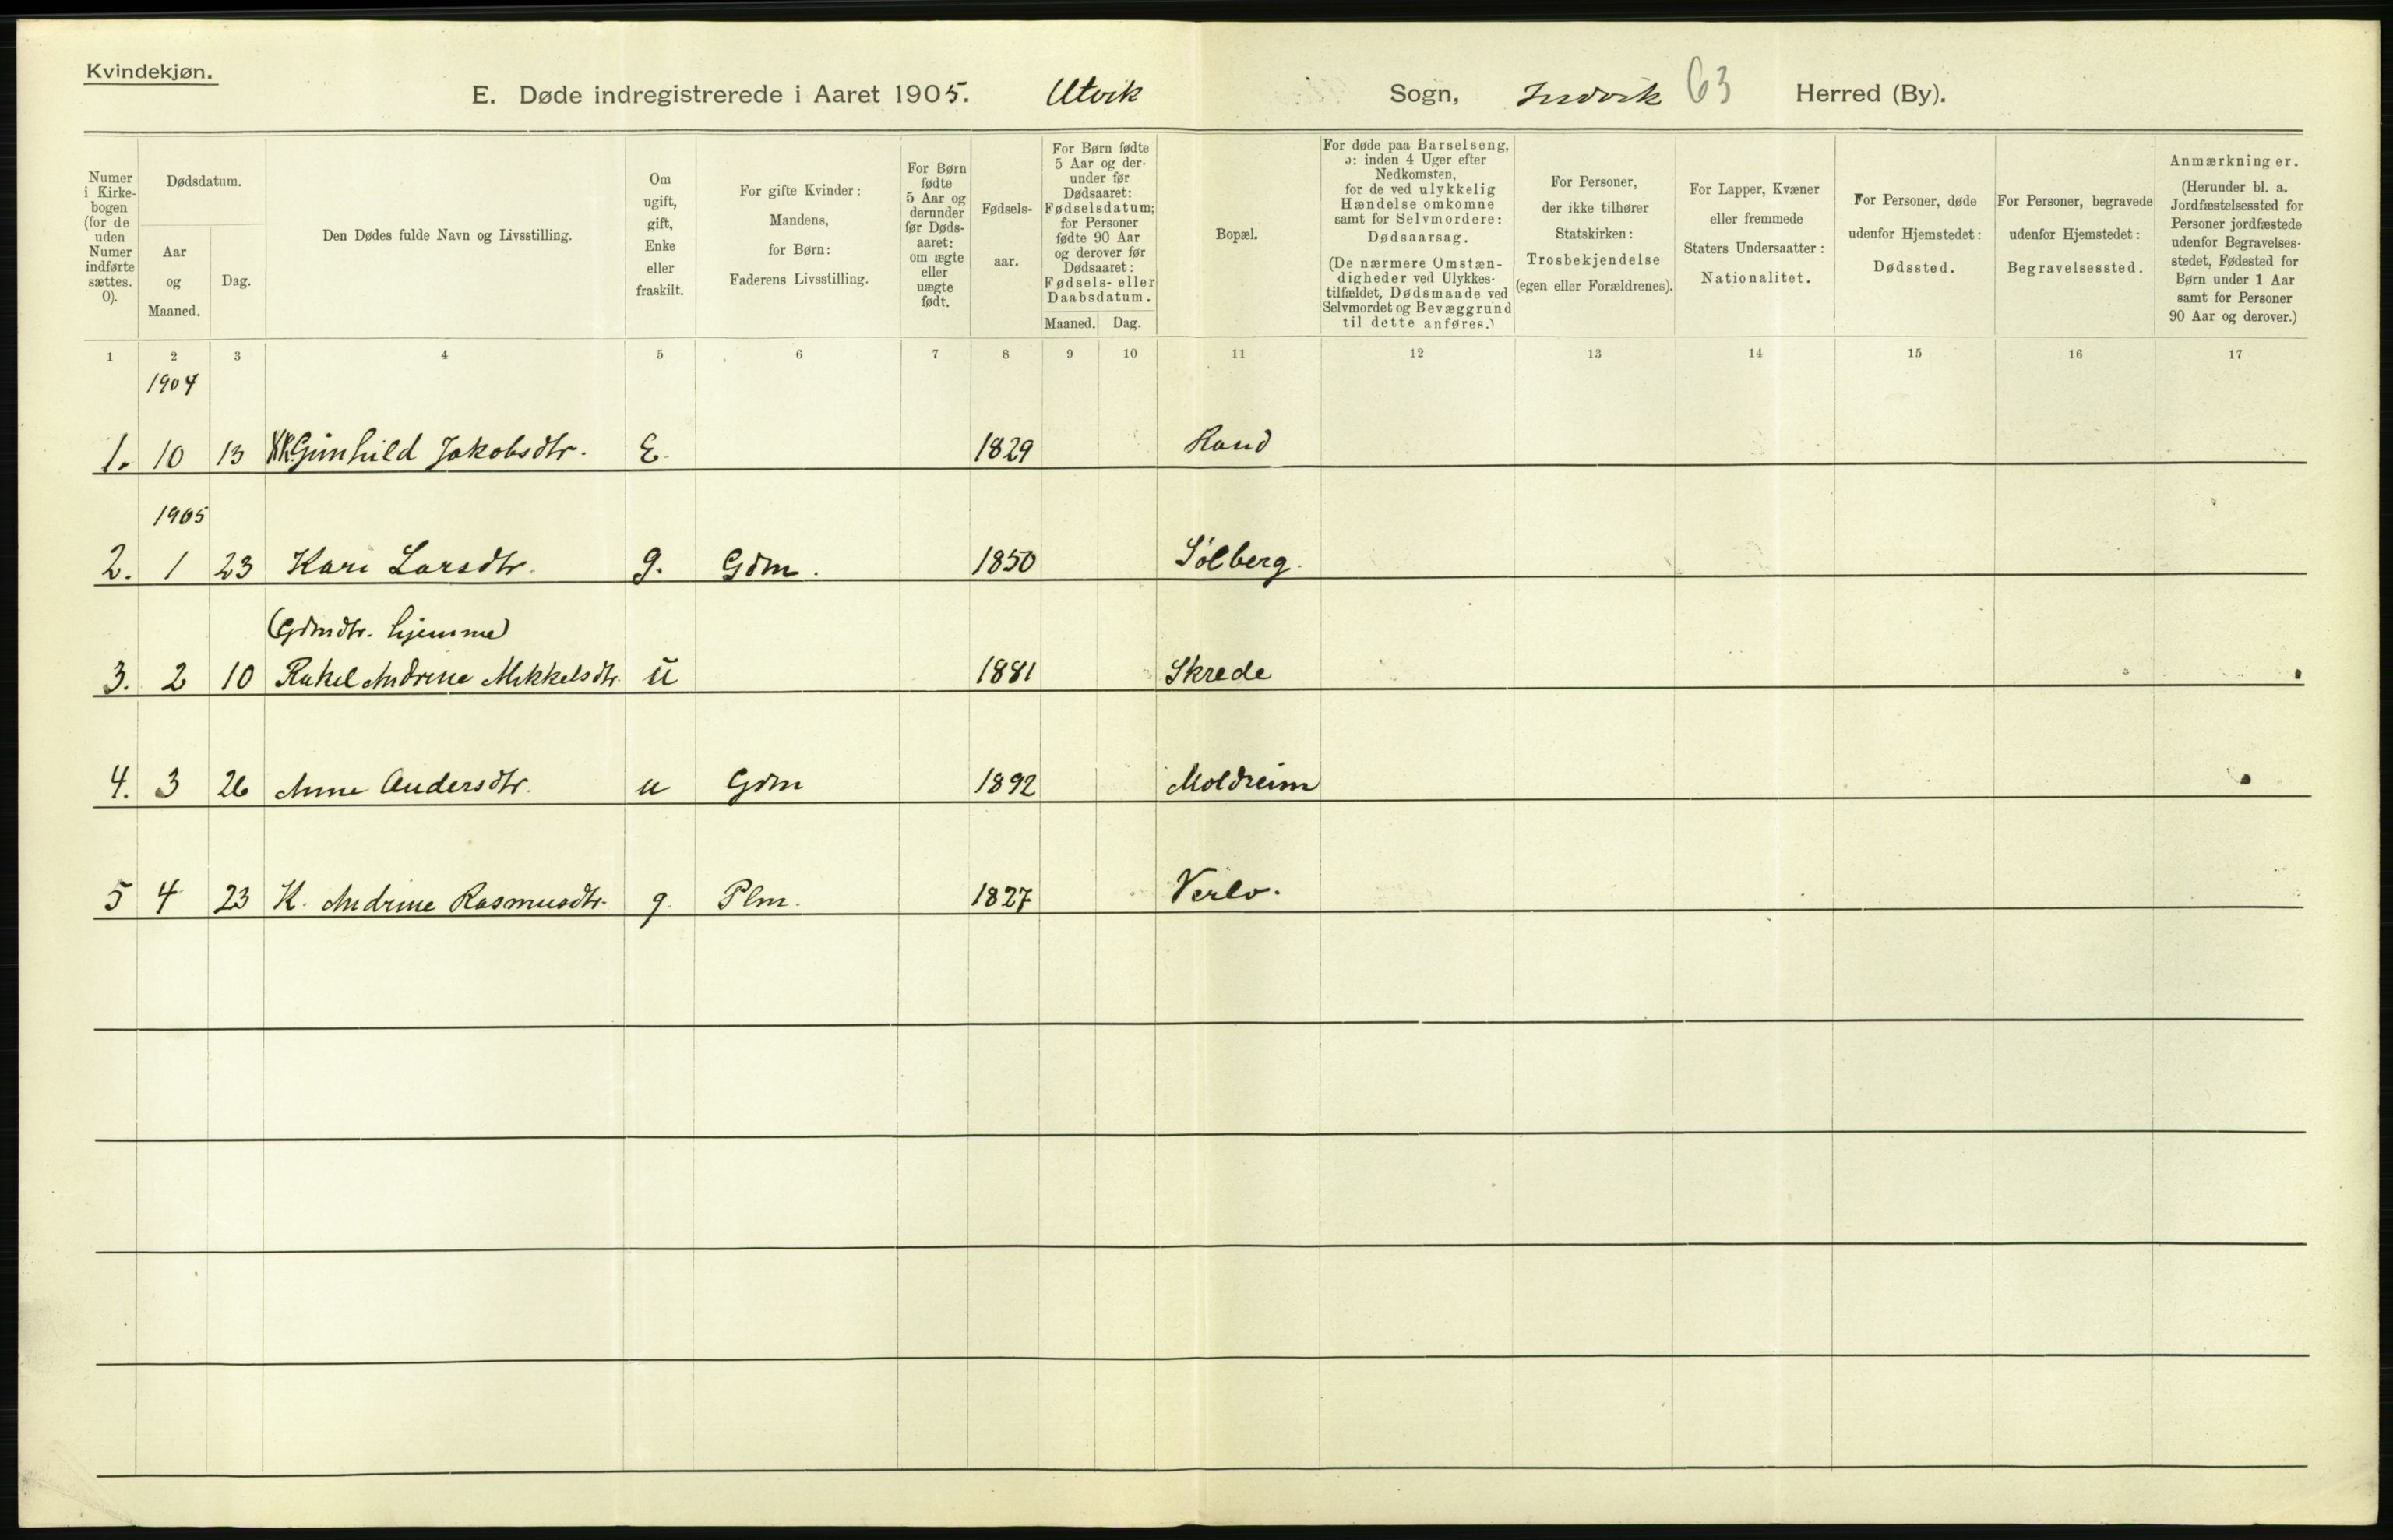 Kvindekjøn.
E. Døde indregistrerede i Aaret 1905. Utvik Sogn, Indvik 63 Herred (By).
Numer i Kirke- bogen (for de uden Numer indførte sættes. 0).
Dødsdatum.
Aar og Maaned.
Dag.
Den Dødes fulde Navn og Livsstilling.
Om ugift, gift, Enke eller fraskilt.
For gifte Kvinder: Mandens, for Børn: Faderens Livsstilling.
For Børn fødte 5 Aar og derunder før Døds- aaret: om ægte eller uægte født.
Fødsels- aar.
For Børn fødte 5 Aar og der- under før Dødsaaret: Fødselsdatum; for Personer fødte 90 Aar og derover før Dødsaaret: Fødsels- eller Daabsdatum.
Maaned. Dag.
Bopæl.
For døde paa Barselseng, ɔ: inden 4 Uger efter Nedkomsten, for de ved ulykkelig Hændelse omkomne samt for Selvmordere: Dødsaarsag. (De nærmere Omstæn- digheder ved Ulykkes- tilfældet, Dødsmaade ved Selvmordet og Bevæggrund til dette anføres.)
For Personer, der ikke tilhører Statskirken: Trosbekjendelse (egen eller Forældrenes).
For Lapper, Kvæner eller fremmede Staters Undersaatter: Nationalitet.
For Personer, døde udenfor Hjemstedet: Dødssted.
For Personer, begravede udenfor Hjemstedet: Begravelsessted.
Anmærkninger. (Herunder bl. a. Jordfæstelsessted for Personer jordfæstede udenfor Begravelses- stedet, Fødested for Børn under 1 Aar samt for Personer 90 Aar og derover.)
1 2 3 4 5 6 7 8 9 10 11 12 13 14 15 16 17
1904
1. 10 13 Gunhild Jakobsdtr. E. 1829 Rand
1905
2. 1 23 Kari Larsdtr. g. Gdm. 1850 Solberg.
(Gdmdtr. hjemme)
3. 2 10 Rakel Andrine Mikkelsdtr. u 1881 Skrede
4. 3 26 Anne Andersdtr. u Gdm 1892 Moldreim
5 4 23 K. Andrine Rasmusdtr. g. Plm. 1827 Verlo.